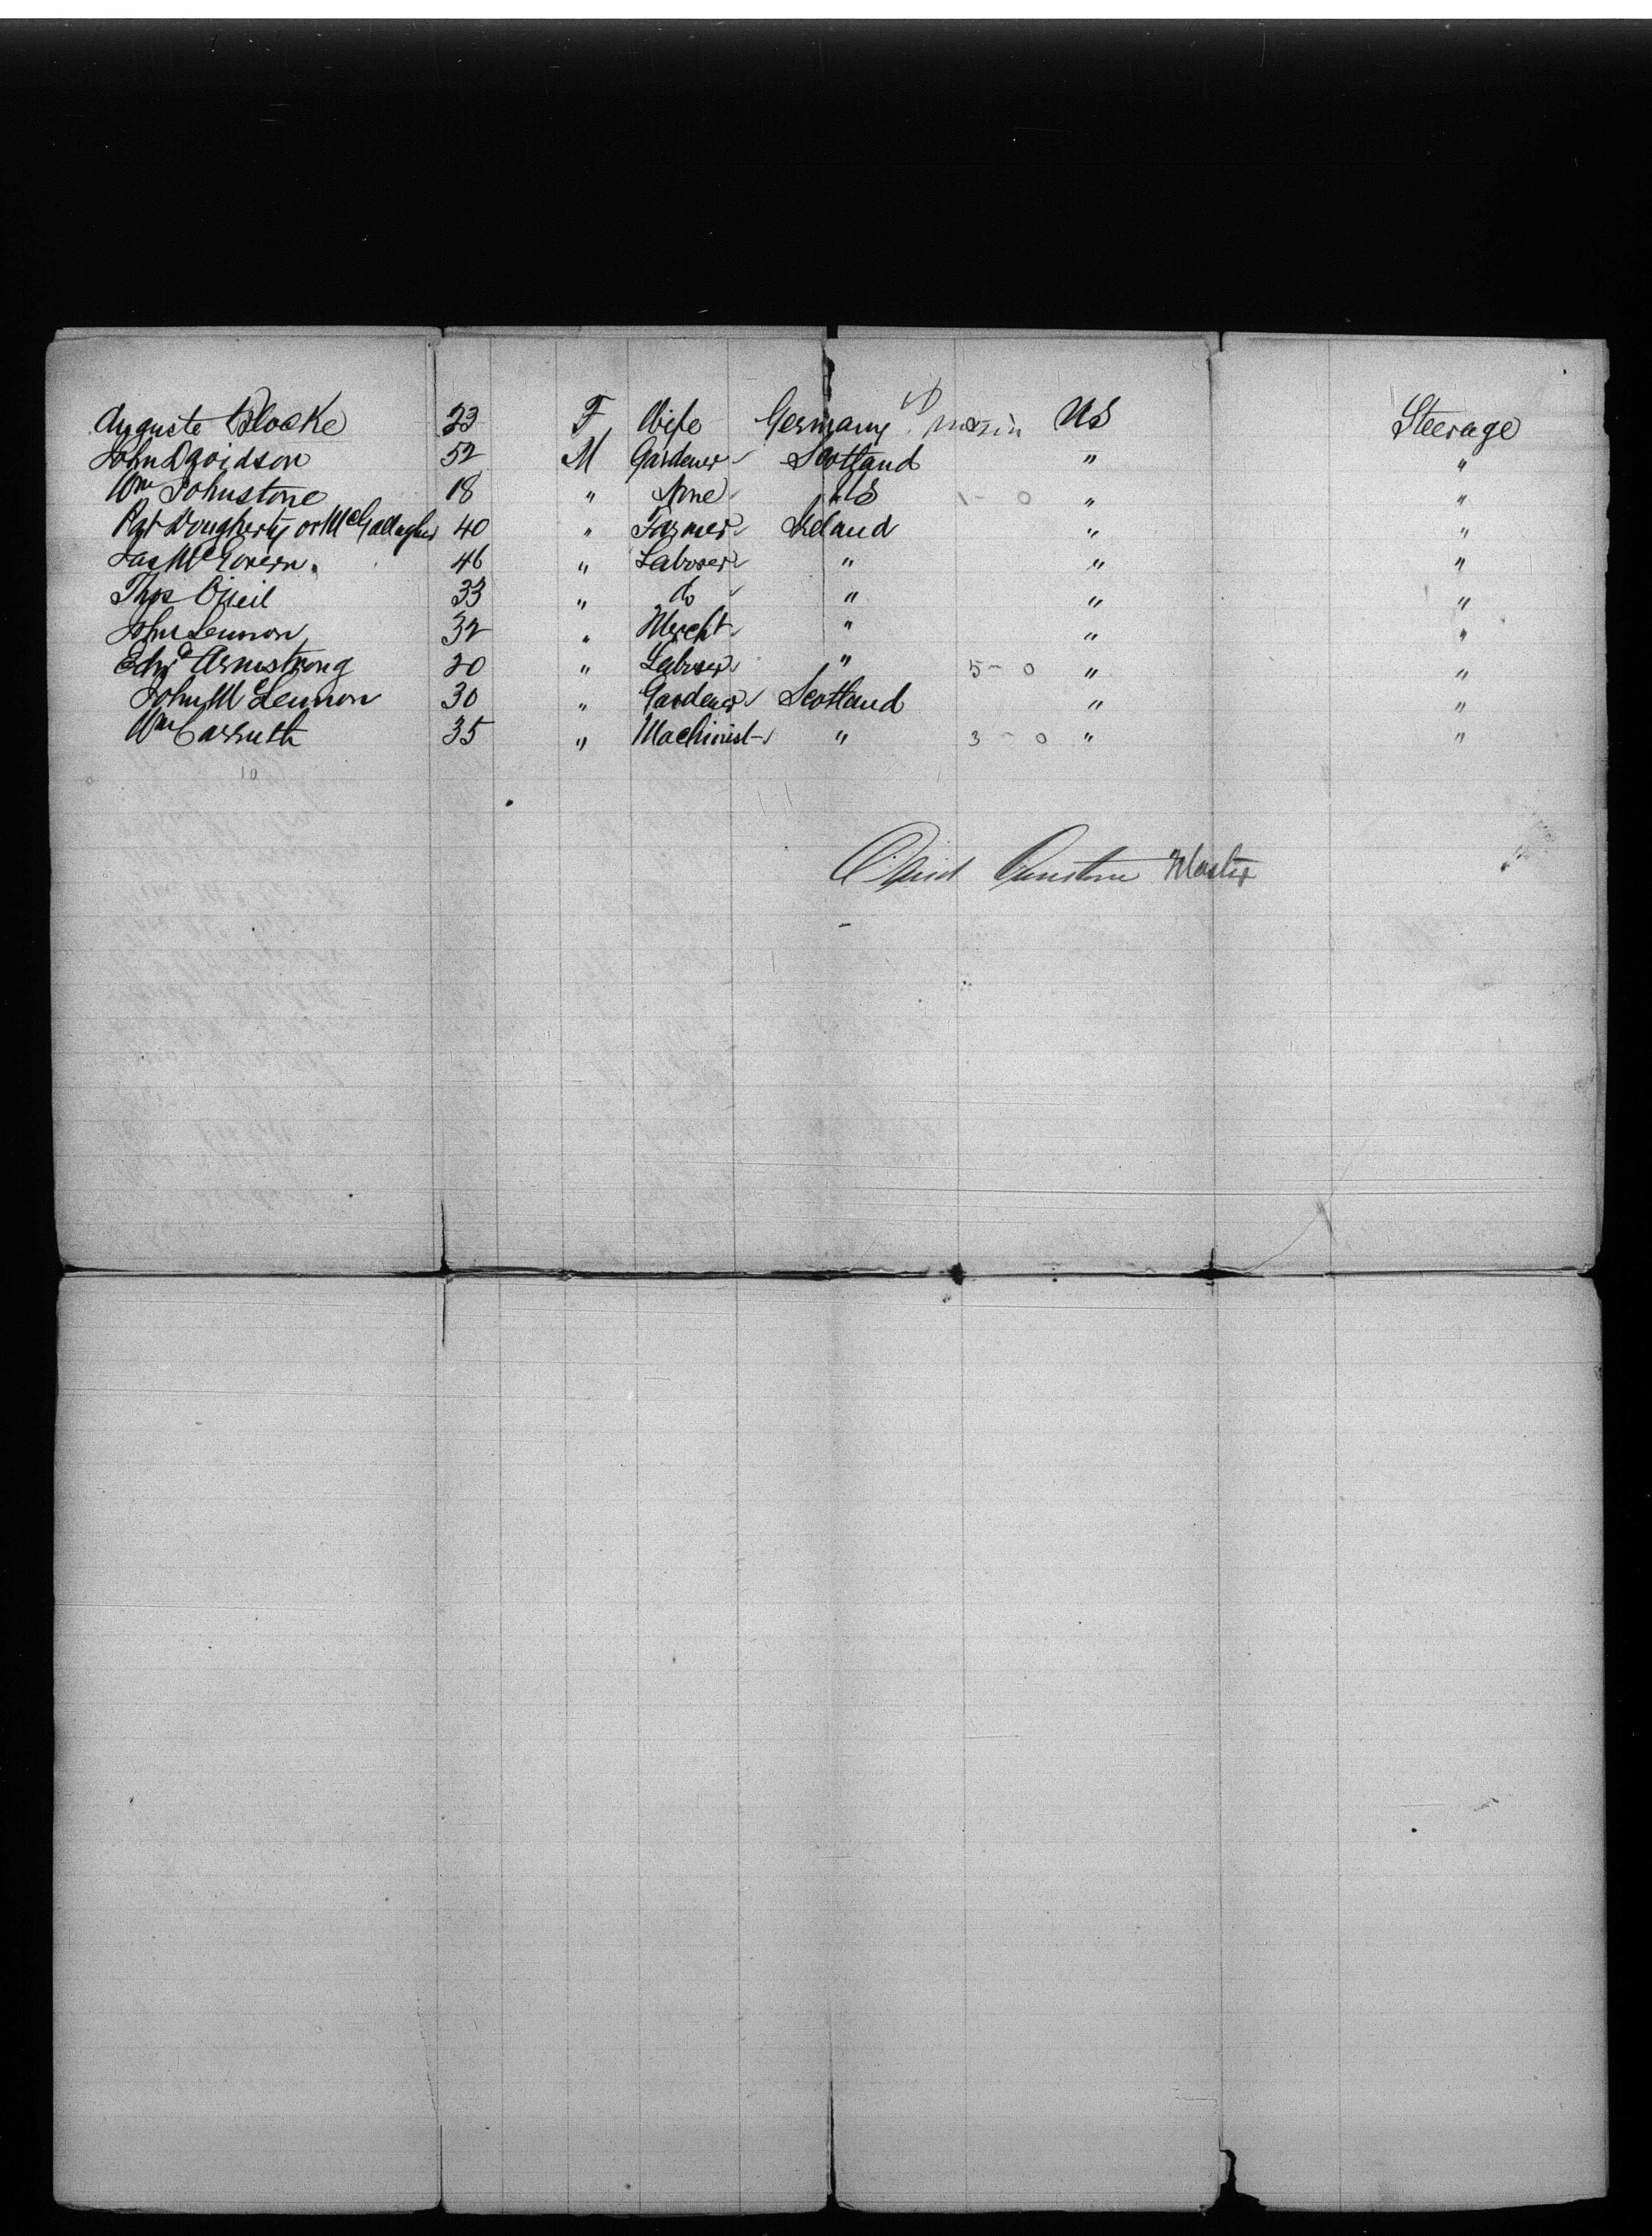 Auguste Blocke 23 F Wife Germany US Steerage
John Davidson 52 M Gardener Scotland " "
Wm Johnstone 18 " None US 1 - 0 " "
Pat Dougherty or McGallagher 40 " Farmer Ireland " "
Jas McGovern. 46 " Laborer " " "
Thos O'Neil 33 " do " " "
John Lennon 32 " Mercht " " "
Edwd Armstrong 20 " Laborer " 5 - 0 " "
John McLennon 30 " Gardener Scotland " "
Wm Carruth 35 " Machinist " 3 - 0 " "
10
David Master